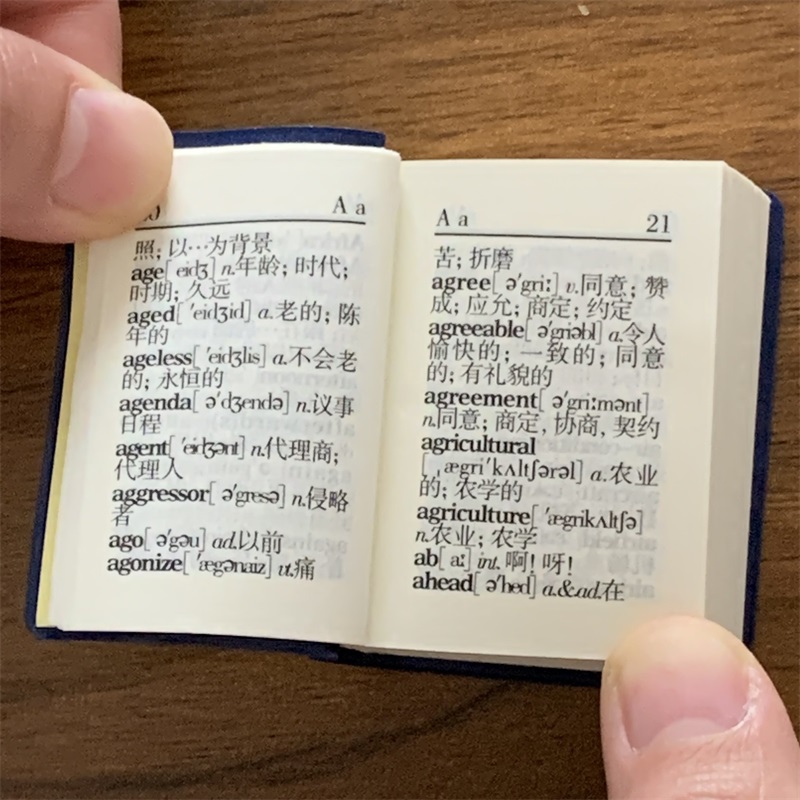 0 A a
照; 以…为背景
age[ eidʒ] n.年龄; 时代;
时期; 久远
aged[ ′eidʒid] a.老的; 陈
年的
ageless[ ′eidʒlis] a.不会老
的; 永恒的
agenda[ ə′dʒendə] n.议事
日程
agent[ ′eidʒənt] n.代理商;
代理人
aggressor[ ə′gresə] n.侵略
者
ago[ ə′gəu] ad.以前
agonize[ ′ægənaiz] vt.痛
A a 21
苦; 折磨
agree[ ə′griː] v.同意; 赞
成; 应允; 商定; 约定
agreeable[ ə′griəbl] a.令人
愉快的; 一致的; 同意
的; 有礼貌的
agreement[ ə′griːmənt]
n.同意; 商定, 协商, 契约
agricultural
[ ˌægri′kʌltʃərəl] a.农业
的; 农学的
agriculture[ ′ægrikʌltʃə]
n.农业; 农学
ab[ aː] int. 啊! 呀!
ahead[ ə′hed] a.&ad.在